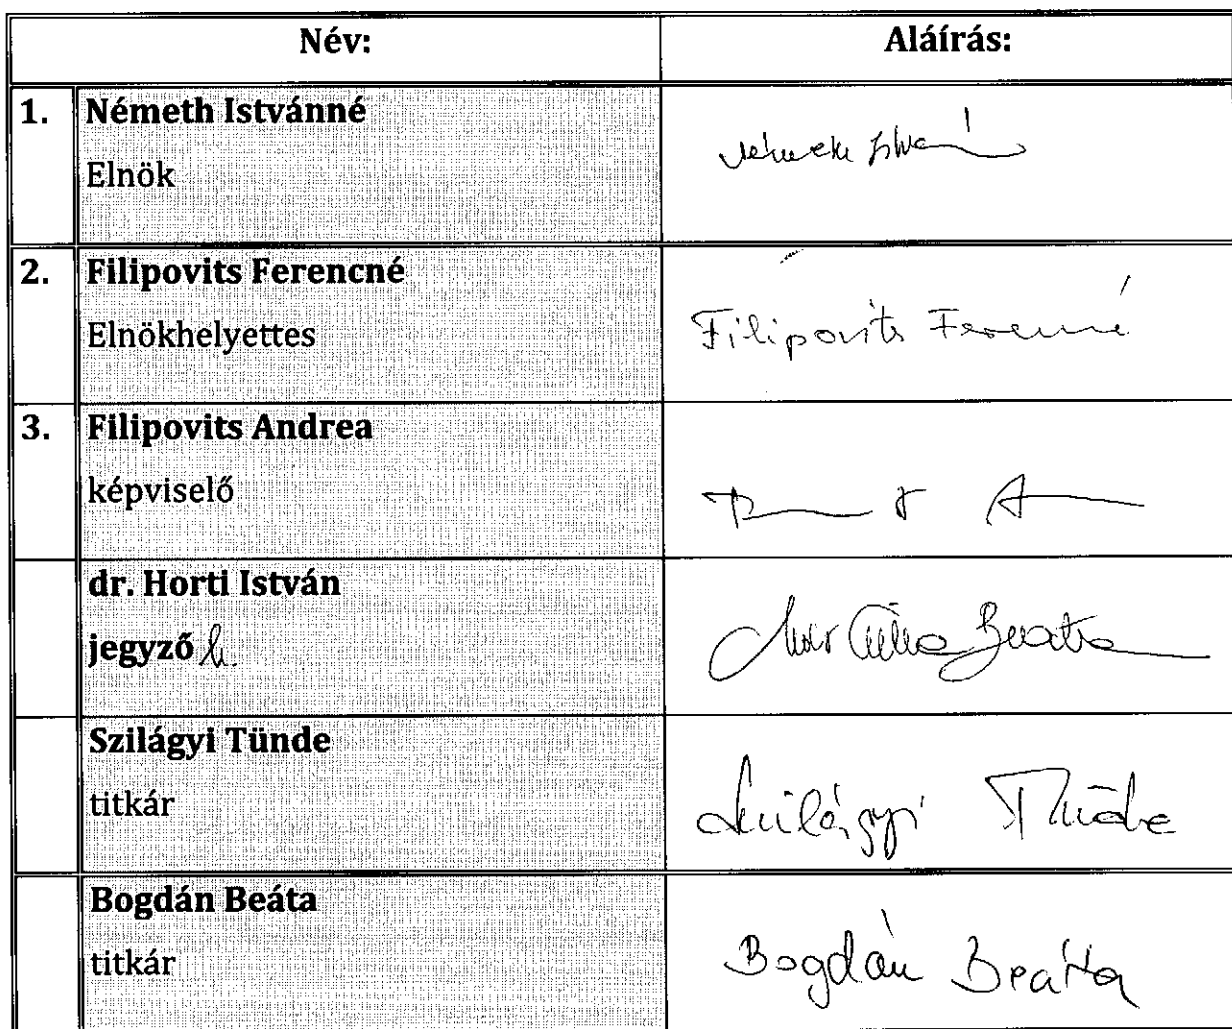 Név: Aláírás:
1. Németh Istvánné
Elnök
2. Filipovits Ferencné
Elnökhelyettes
Filipovits Ferencné
3. Filipovits Andrea
képviselő
dr. Horti István
jegyző h.
Beáta
Szilágyi Tünde
titkár
Szilágyi Tünde
Bogdán Beáta
titkár
Bogdán Beáta